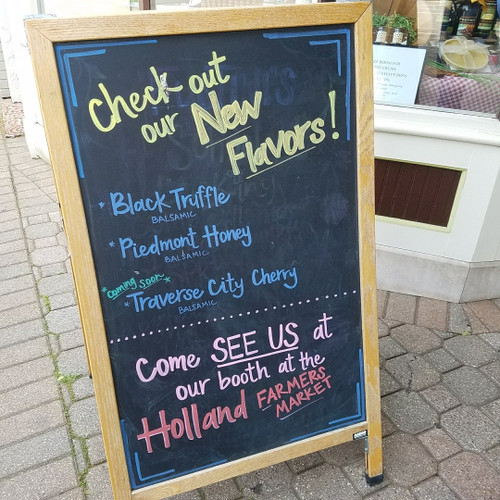 Check out
our New
Flavors!
* Black Truffle
BALSAMIC
* Piedmont Honey
BALSAMIC
*coming soon*
* Traverse City Cherry
BALSAMIC
Come SEE US at
our booth at the
Holland FARMERS
MARKET